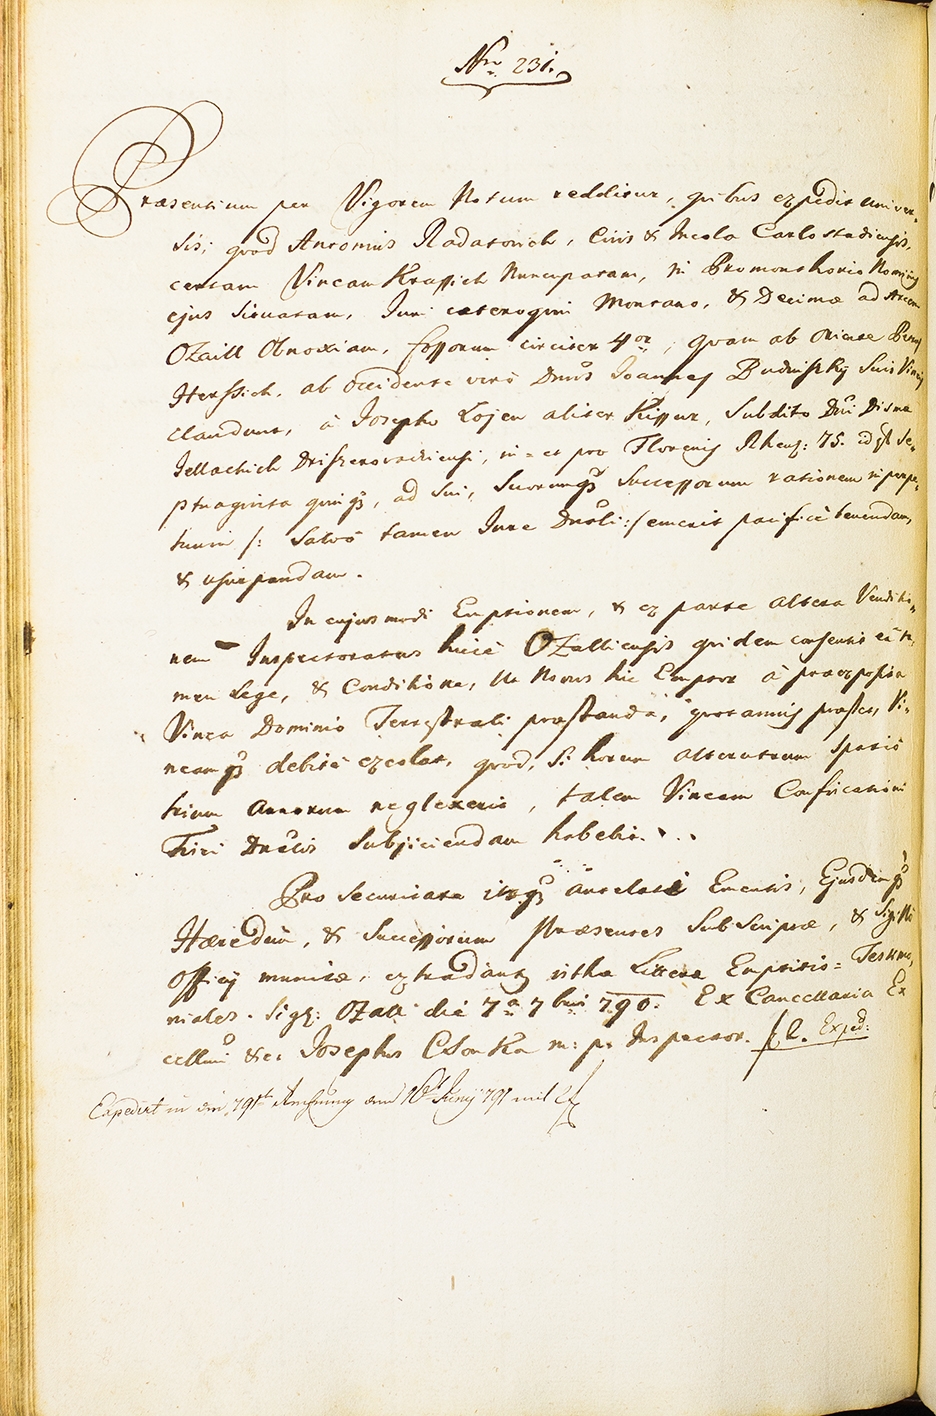 Nro 231.
Praesentium per Vigorem Notum redditur, quibus expedit univer-
sis; quod Antonius Radatovich, Civis & Incola Carlostadiensis,
certam Vineam Krassich Nuncupatam, in Promonthorio Nominis
ejus Situatam, Juri caeteroquin Montano, & Decimae ad Arcem
Ozaill Obnoxiam, fossorum circiter 4or, quam ab Oriente
Herssich, ab Occidente verò Dnus Joannes Budinszky Suis Vineis
claudunt, à Josepho Lojen aliter Kissur, Subdito Dni Disma
Jellachich Driszerovadiensi, in = et pro Florenis Rhens: 75. id est Se-
ptuaginta quinque, ad Sui, Suorumque Successorum rationem in perpe-
tuum /: Salvo tamen Jure Dnali :/ emerit pacificè tenendam,
& usurpandam.
In cujusmodi Emptionem, & ex parte altera Venditio-
nem Inspectoratus hicce Ozalliensis quidem consentit eâ ta-
men Lege, & Conditione, ut Novus hic Emptor à praeexposita
Vinea Dominio Terrestrali praestanda, quotannis praestet, Vi-
neamque debitè excolat, quod, Si horum alterutrum Spatio
trium Annorum neglexerit, talem Vineam Confiscationi
Fisci Dnalis Subjiciendam habebit.
Pro Securitate itaque antelati Ementis, Ejusdemque
Haeredum, & Successorum Praesentes Subscriptae, & Sigillo
Officij munitae, extradantur isthae Litterae Emptitio = Testimo-
niales. Sigl: Ozall die 7a 7bris 790. Ex Cancellaria Ex
cellmi &c. Josephus Csonka m: p: Inspector. f 2. Exped:
Expedirt in die 791st Rechnung am 16t Juny 791 mit 2 f